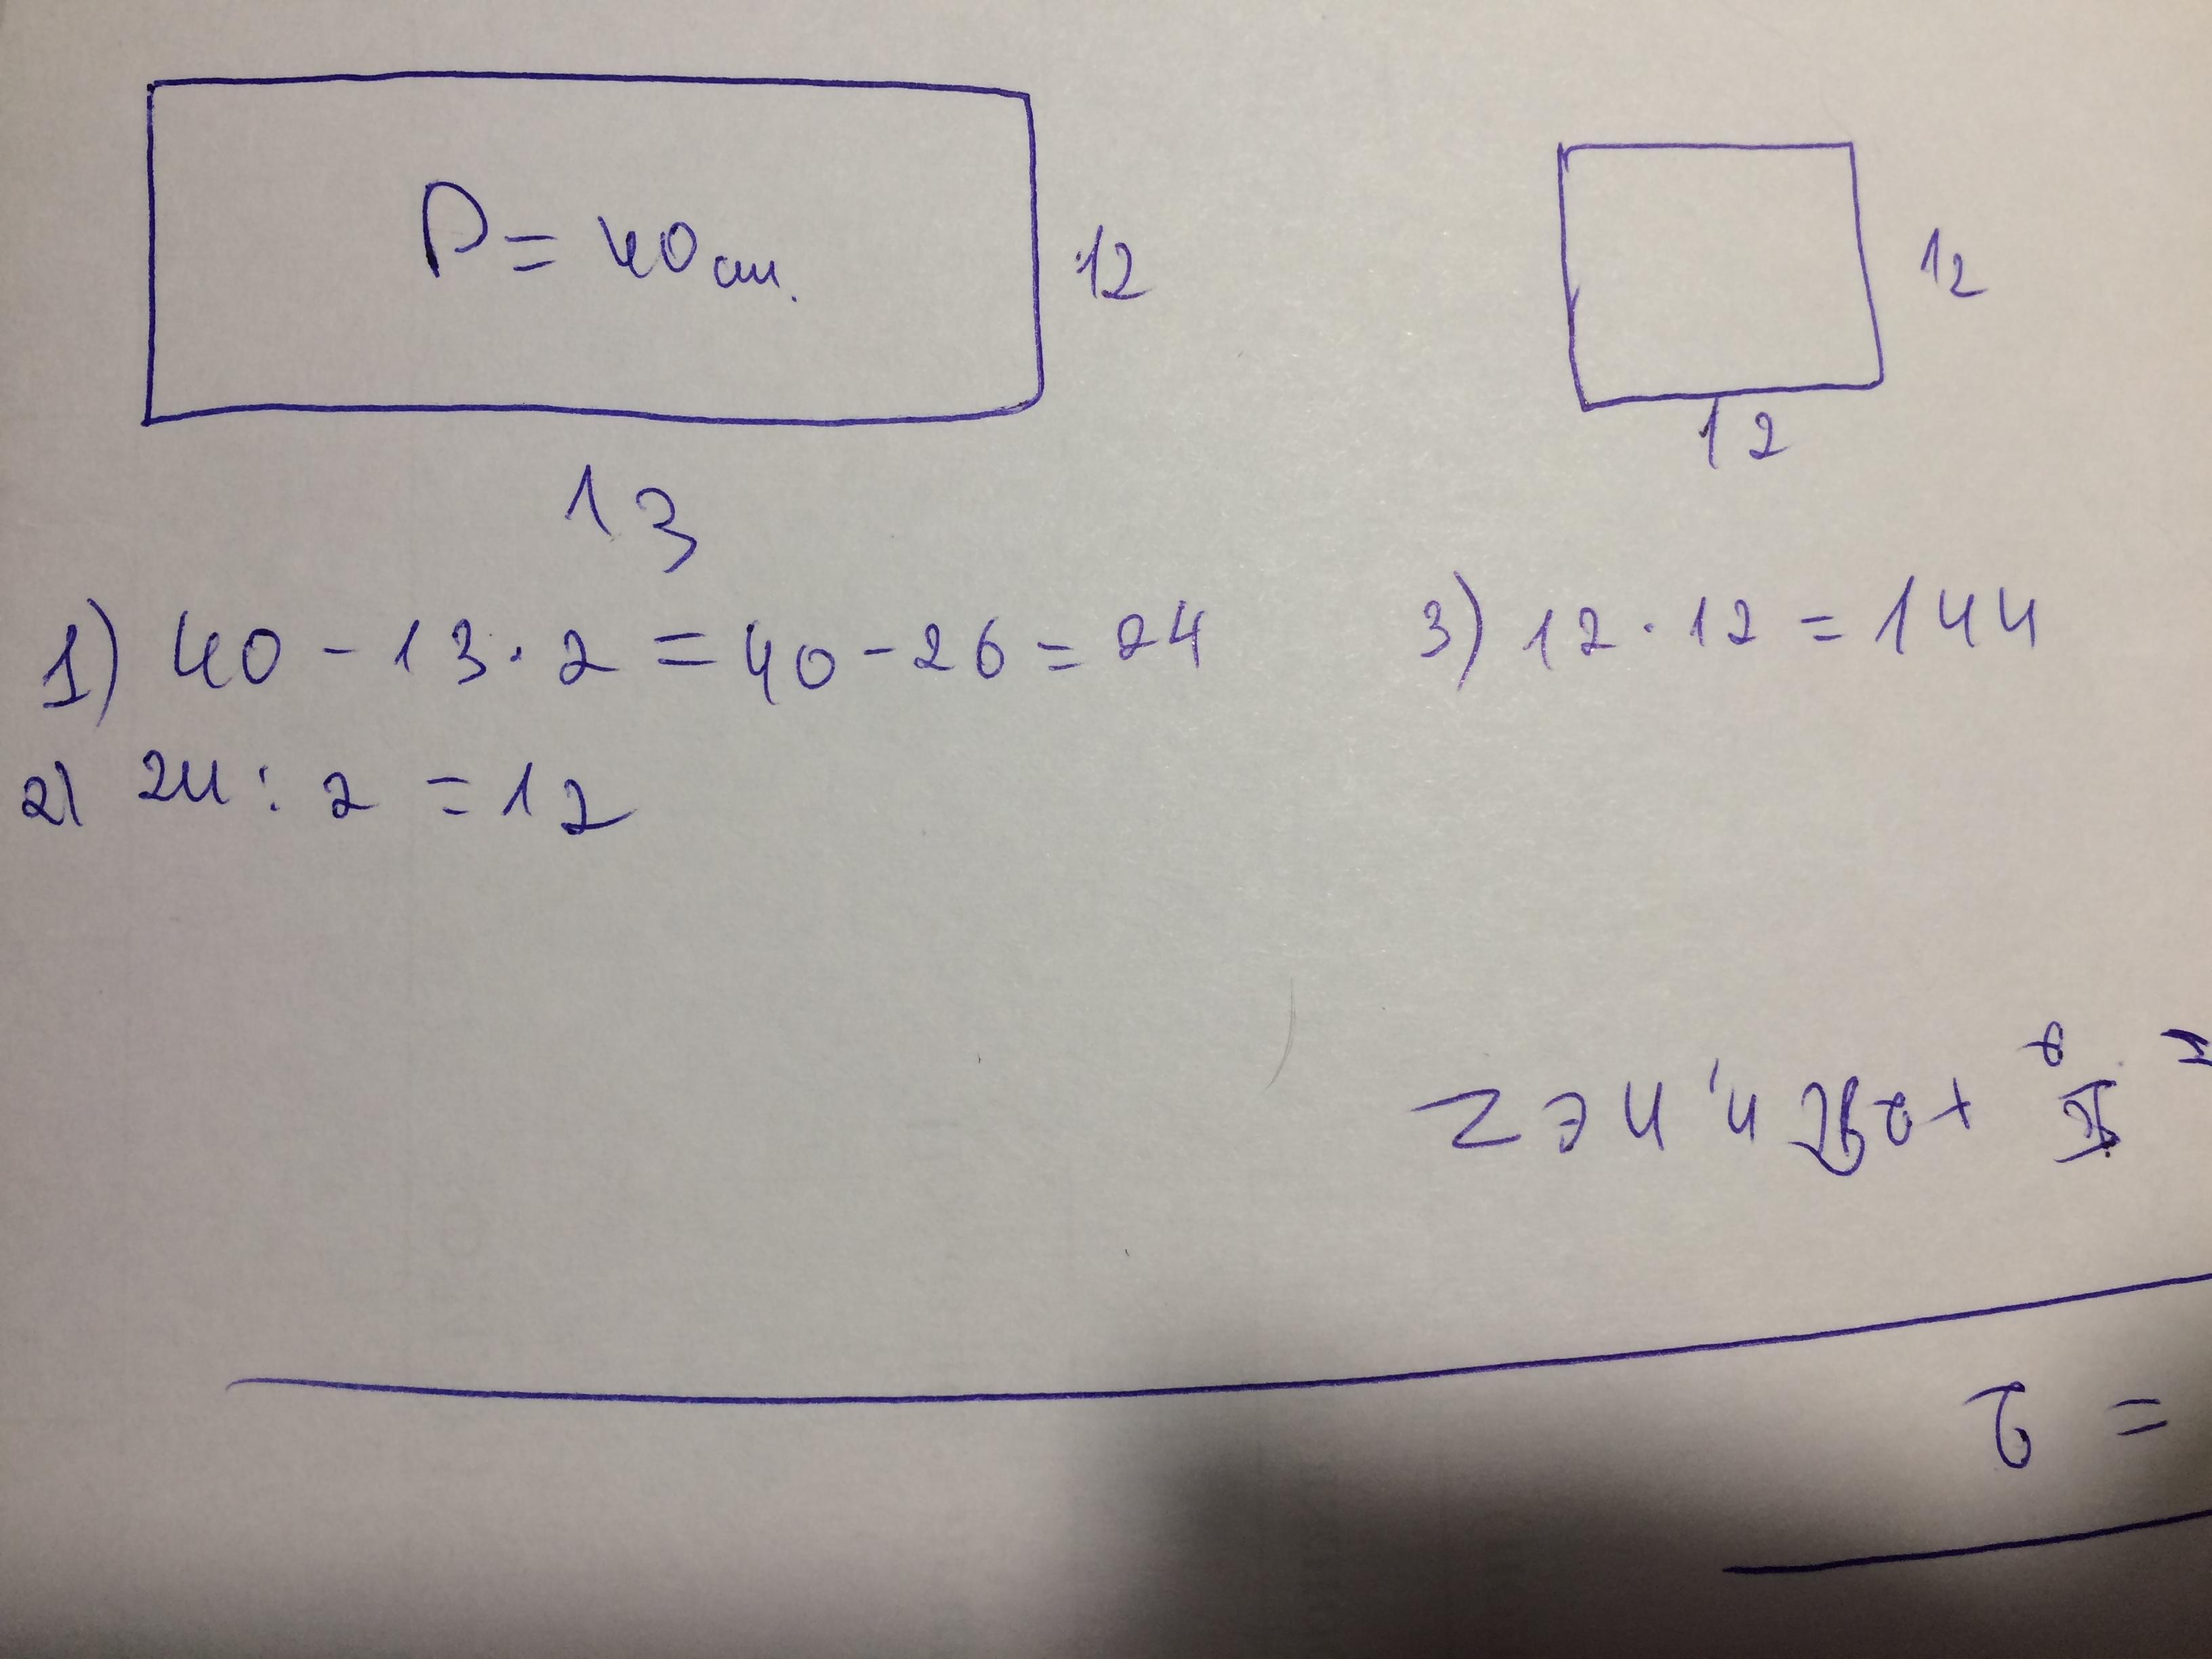 P = 40 см.
12
13
12
12
1) 40 - 13 · 2 = 40 - 26 = 24
2) 24 : 2 = 12
3) 12 · 12 = 144